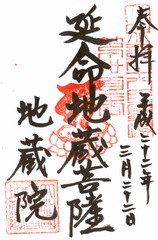 奉拝
平成二十二年
三月二十二日
延命地蔵菩薩
地蔵院